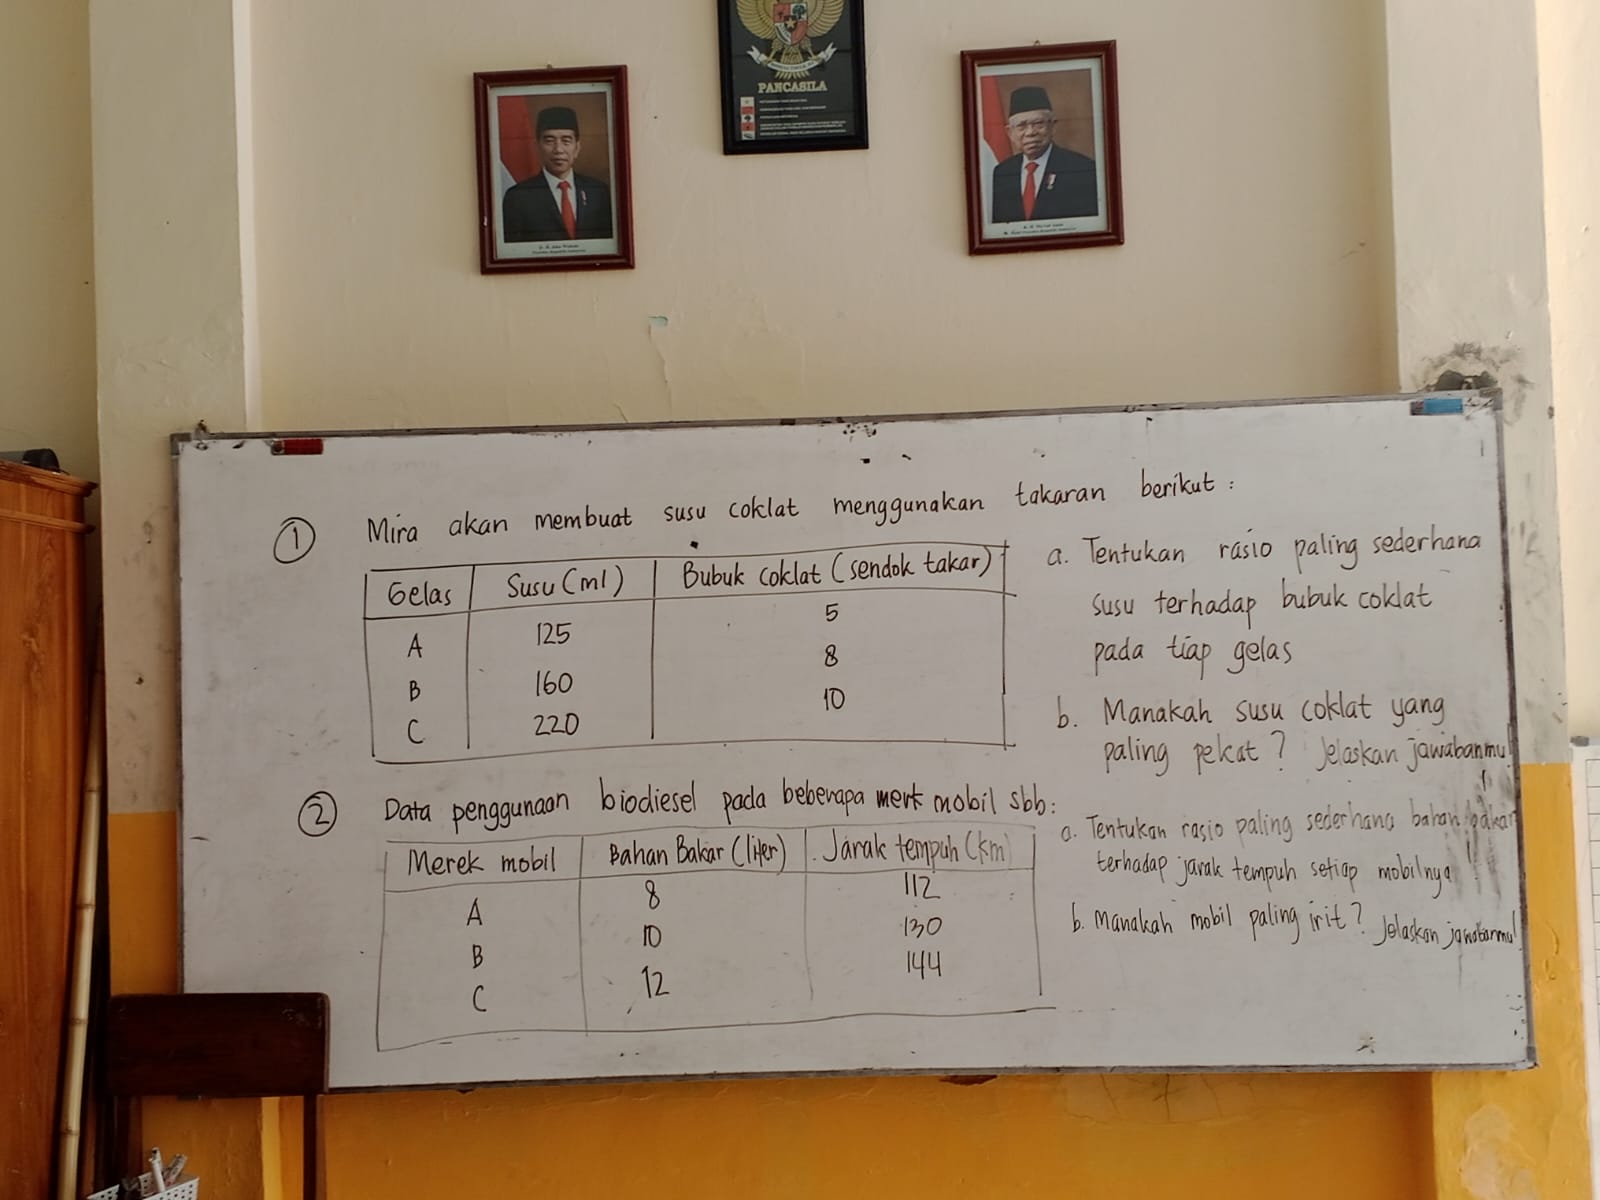 PANCASILA
① Mira akan membuat susu coklat menggunakan takaran berikut :
Gelas Susu (ml) Bubuk coklat (sendok takar)
A 125 5
B 160 8
C 220 10
a. Tentukan rasio paling sederhana
susu terhadap bubuk coklat
pada tiap gelas
b. Manakah susu coklat yang
paling pekat? Jelaskan jawabanmu!
② Data penggunaan biodiesel pada beberapa merk mobil sbb:
Merek mobil Bahan Bakar (liter) Jarak tempuh (km)
A 8 112
B 10 130
C 12 144
a. Tentukan rasio paling sederhana bahan bakar
terhadap jarak tempuh setiap mobilnya !
b. Manakah mobil paling irit? Jelaskan jawabanmu!